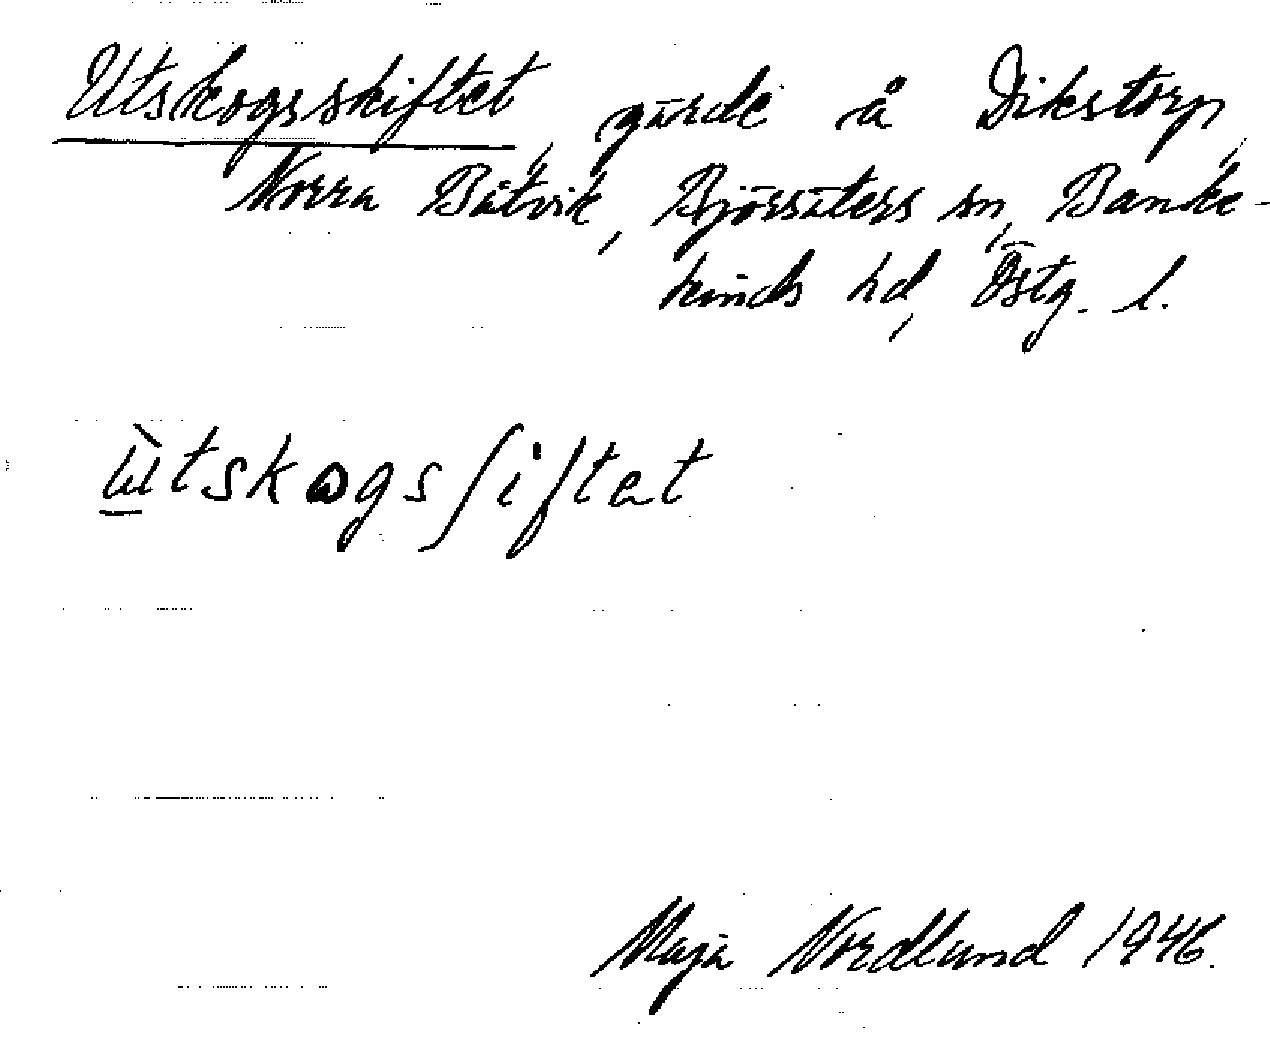 Utskogsskiftet, gärde å Dikstorp,
Norra Båtvik, Björsäters sn, Banke-
kinds hd, Östg. l.
ɯ̀tskogsʃiftət
Maja Nordlund 1946.